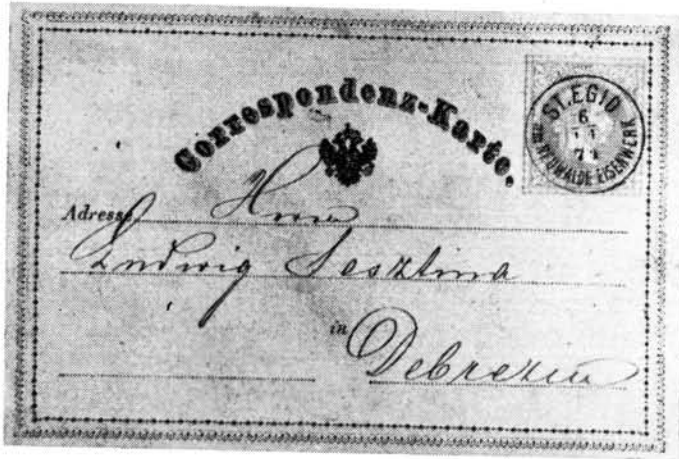 Correspondenz-Karte.
ST. EGID
6
71
EISENWERK
Adresse Herrn
Ludwig Sesztina
in
Debrezin